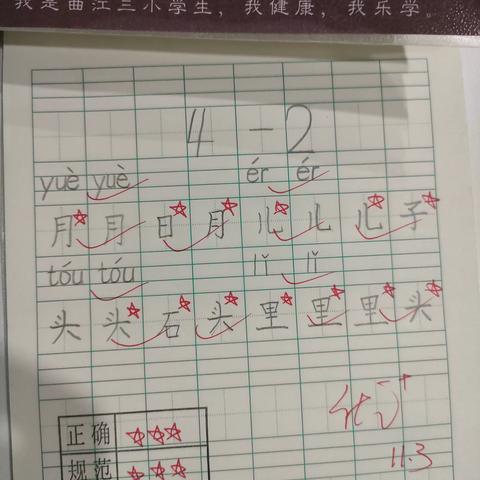 我是曲江三小学生，我健康，我乐学。
4-2
yuè yuè ér ér
月 月 日 月 儿 儿 儿 子
tóu tóu lǐ lǐ
头 头 石 头 里 里 里 头
优+
正确
11.3
规范